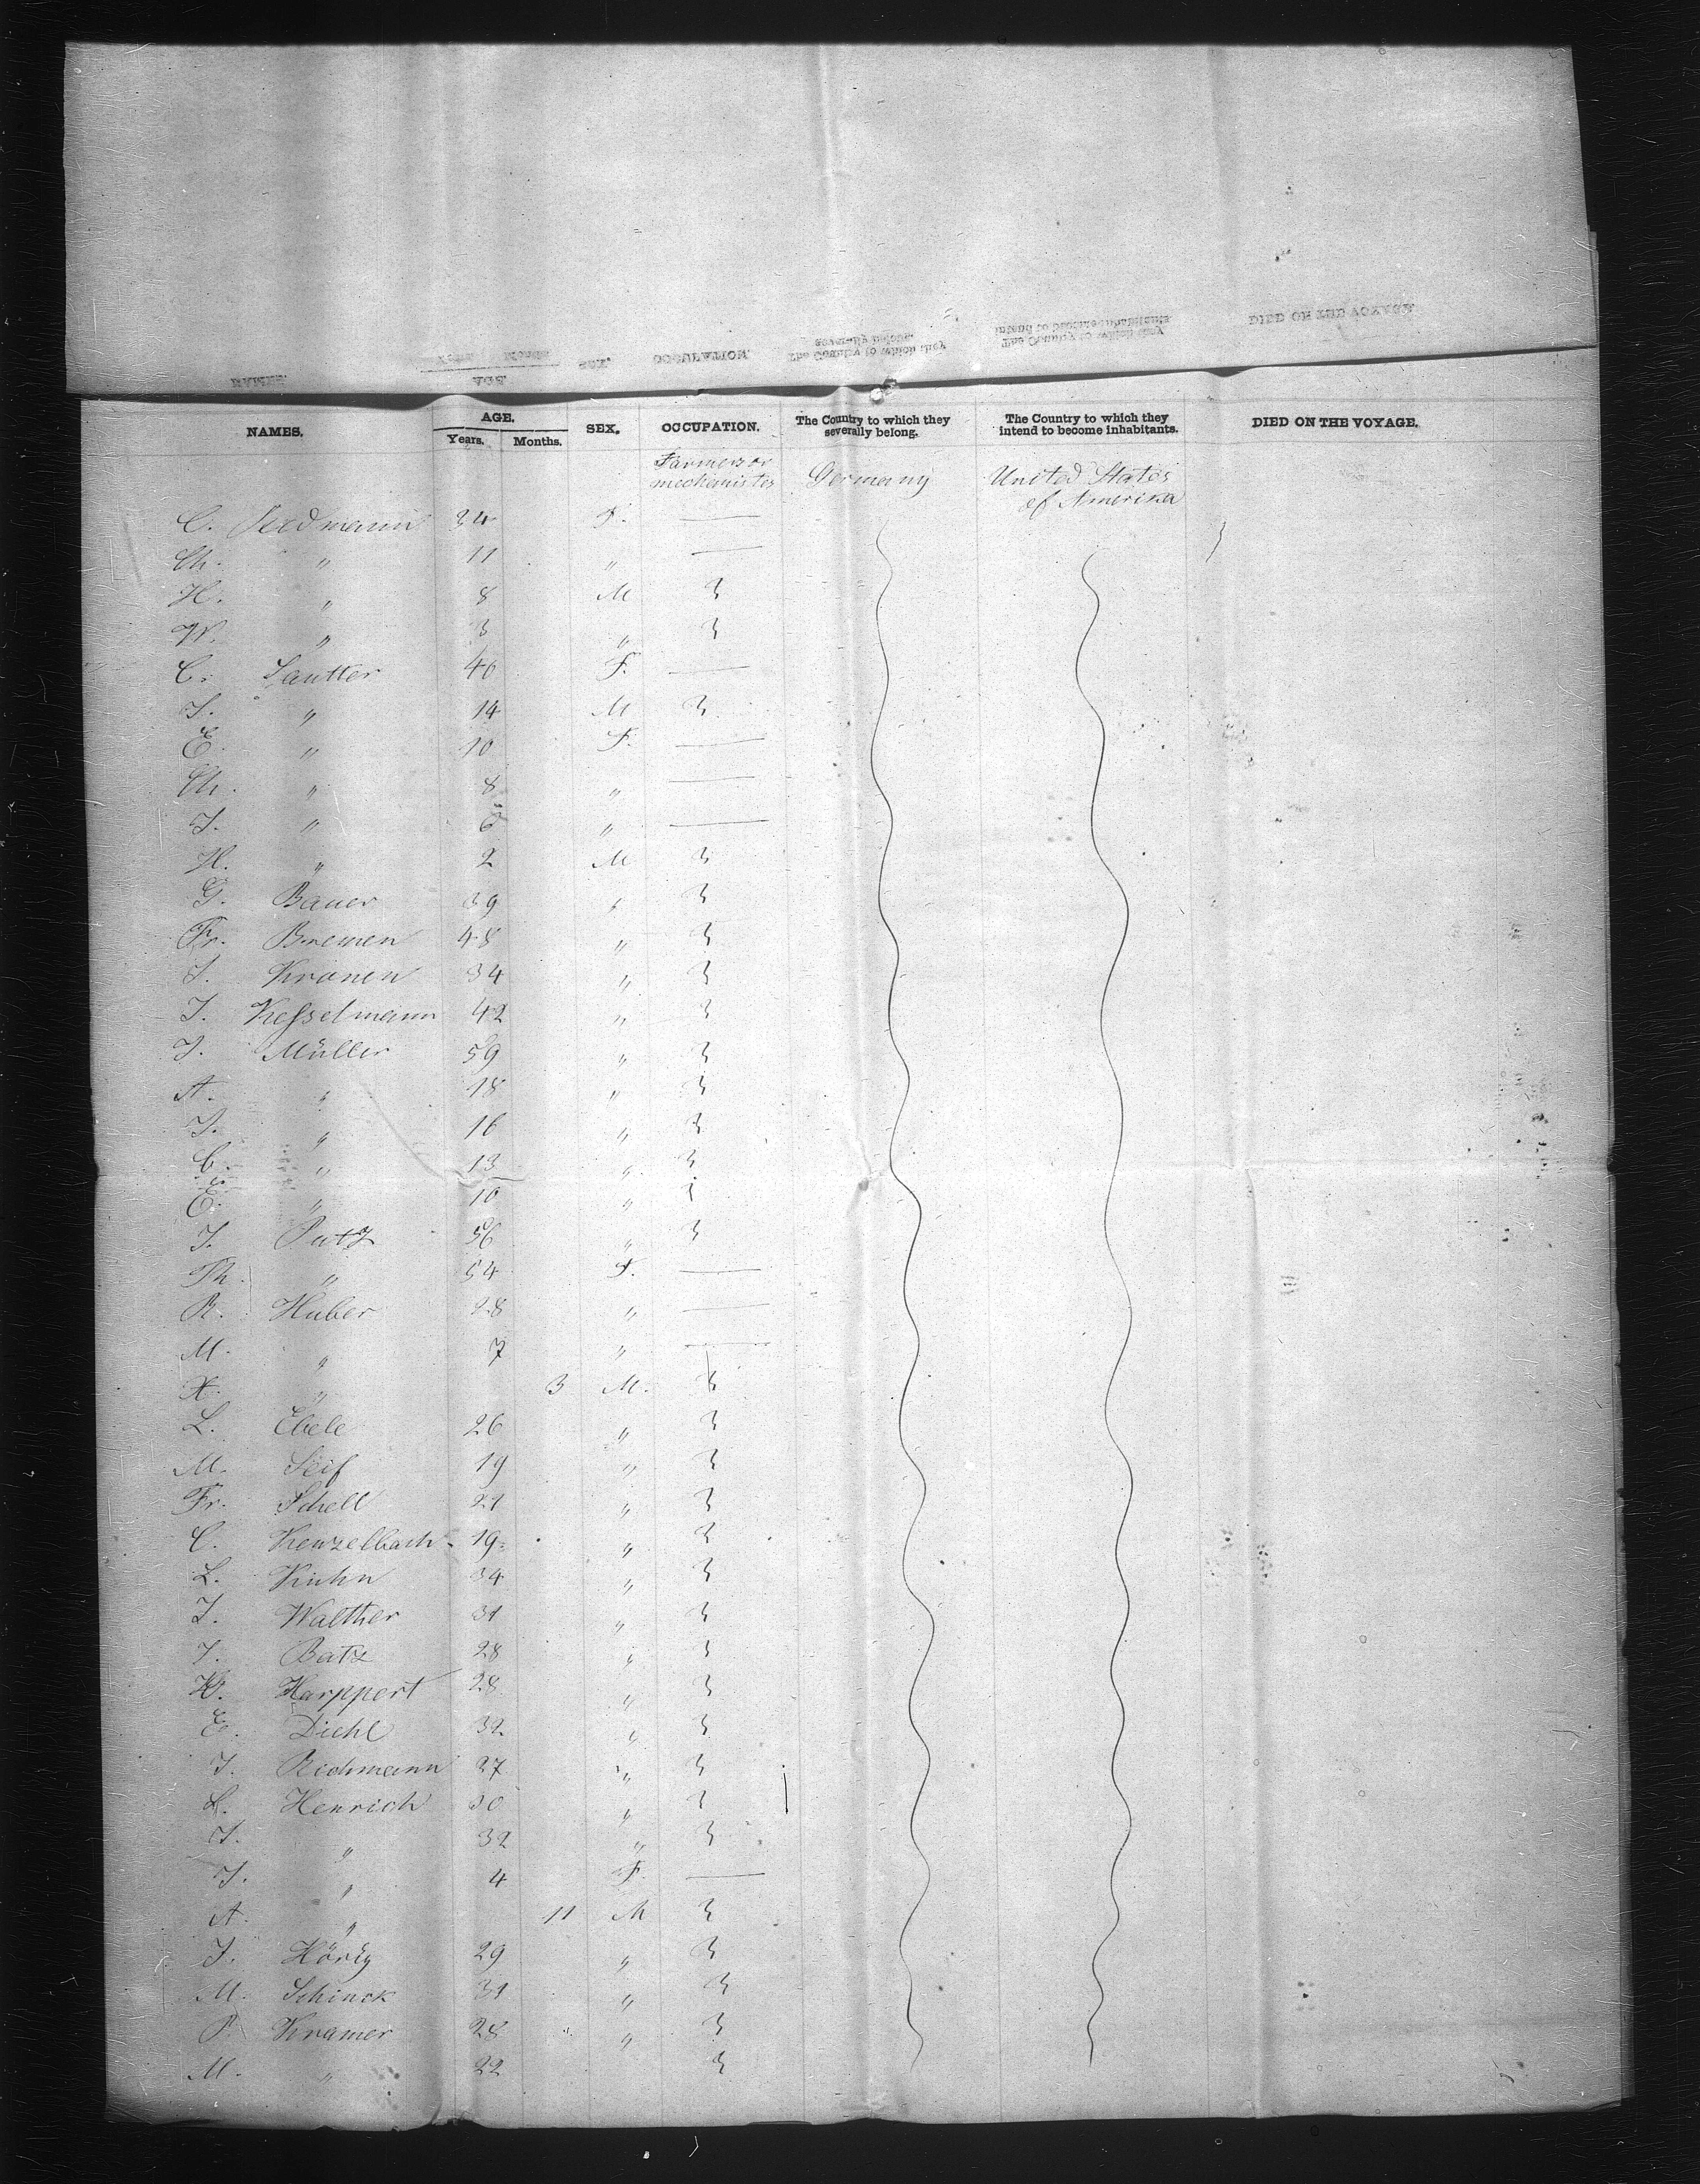 NAMES. AGE. SEX. OCCUPATION. The Country to which they severally belong. The Country to which they intend to become inhabitants. DIED ON THE VOYAGE.
Years. Months.
Farmers or mechanistes Germany United States of Amerika
C. 34 F. —
Ch. " 11 " —
H. " 8 M 3
W. " 3 " 3
C. Sautter 40 F. —
J. " 14 M 3
E. " 10 F. —
Ch. " 8 " —
J. " 6 " —
H. " 2 M 3
G. Bauer 39 " 3
Fr. Bremen 48 " 3
J. Kronen 34 " 3
J. Kesselmann 42 " 3
J. Müller 59 " 3
A. " 18 " 3
J. " 16 " 3
C. " 13 " 3
E. " 10 " 3
J. Putz 56 " 3
Th. " 54 F. —
R. Huber 28 " —
M. " 7 " —
X. " 3 M. 3
L. Ebele 26 " 3
M. Seif 19 " 3
Fr. Schell 21 " 3
C. Kenzelbach 19 " 3
L. Kuhn 34 " 3
J. Walther 31 " 3
J. Batz 28 " 3
W. Harppert 28 " 3
E. Diehl 32 " 3
J. Richmann 37 " 3
L. Henrich 30 " 3
J. " 32 " 3
J. " 4 F. —
A. " 11 M 3
J. Hörig 29 " 3
M. Schinck 31 " 3
P. Kramer 28 " 3
M. " 22 3